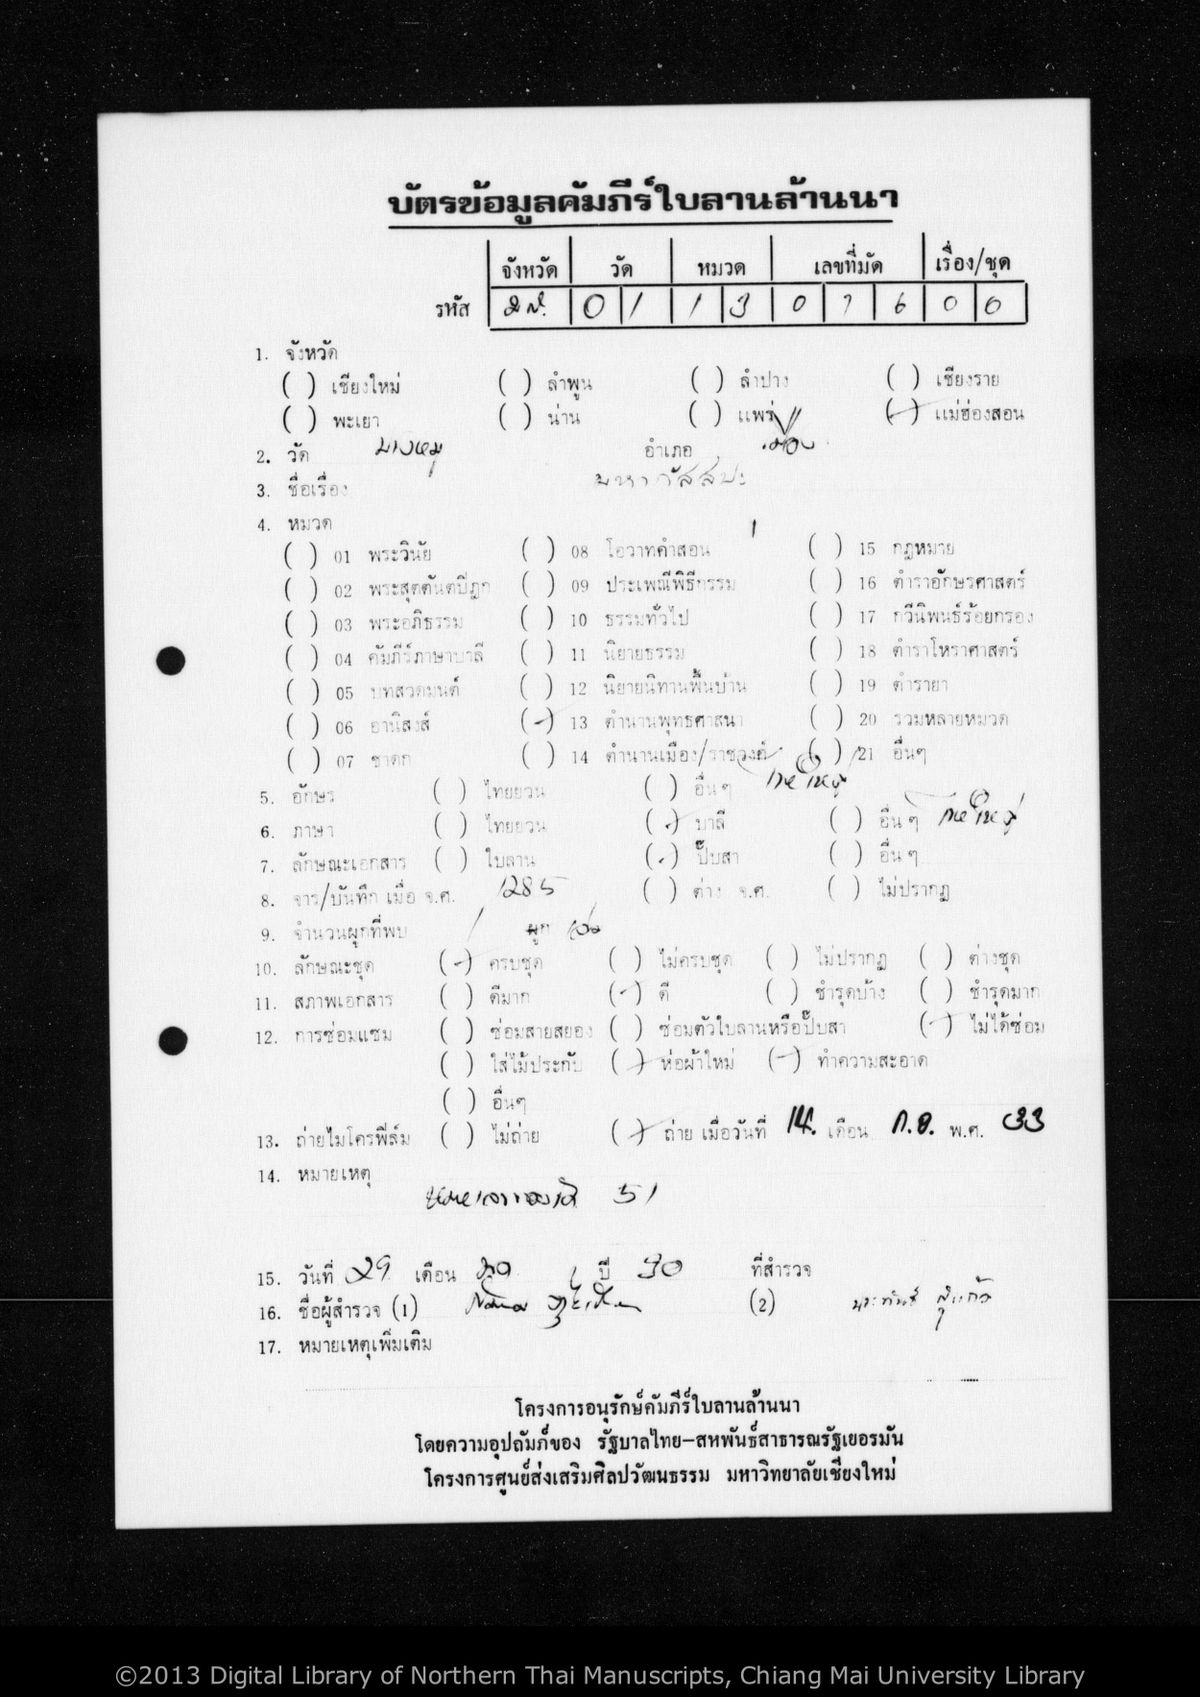 บัตรข้อมูลคัมภีร์ใบลานล้านนา
จังหวัด วัด หมวด เลขที่มัด เรื่อง/ชุด
รหัส มส. 0 1 1 3 0 7 6 0 0
1. จังหวัด
( ) เชียงใหม่ ( ) ลำพูน ( ) ลำปาง ( ) เชียงราย
( ) พะเยา ( ) น่าน ( ) แพร่ (✓) แม่ฮ่องสอน
2. วัด บางหมู อำเภอ เมือง
3. ชื่อเรื่อง มหากัสสปะ
4. หมวด
( ) 01 พระวินัย ( ) 08 โอวาทคำสอน ( ) 15 กฎหมาย
( ) 02 พระสุตตันตปิฎก ( ) 09 ประเพณีพิธีกรรม ( ) 16 ตำราอักษรศาสตร์
( ) 03 พระอภิธรรม ( ) 10 ธรรมทั่วไป ( ) 17 กวีนิพนธ์ร้อยกรอง
( ) 04 คัมภีร์ภาษาบาลี ( ) 11 นิยายธรรม ( ) 18 ตำราโหราศาสตร์
( ) 05 บทสวดมนต์ ( ) 12 นิยายนิทานพื้นบ้าน ( ) 19 ตำรายา
( ) 06 อานิสงส์ (✓) 13 ตำนานพุทธศาสนา ( ) 20 รวมหลายหมวด
( ) 07 ชาดก ( ) 14 ตำนานเมือง/ราชวงศ์ ( ) 21 อื่นๆ
5. อักษร ( ) ไทยยวน ( ) อื่นๆ ไทยใหญ่
6. ภาษา ( ) ไทยยวน (✓) บาลี ( ) อื่นๆ ไทยใหญ่
7. ลักษณะเอกสาร ( ) ใบลาน (✓) ปั๊บสา ( ) อื่นๆ
8. จาร/บันทึก เมื่อ จ.ศ. 1285 ( ) ต่าง จ.ศ. ( ) ไม่ปรากฏ
9. จำนวนผูกที่พบ 1 ผูก เล่ม
10. ลักษณะชุด (✓) ครบชุด ( ) ไม่ครบชุด ( ) ไม่ปรากฏ ( ) ต่างชุด
11. สภาพเอกสาร ( ) ดีมาก (✓) ดี ( ) ชำรุดบ้าง ( ) ชำรุดมาก
12. การซ่อมแซม ( ) ซ่อมสายสยอง ( ) ซ่อมตัวใบลานหรือปั๊บสา (✓) ไม่ได้ซ่อม
( ) ใส่ไม้ประกับ (✓) ห่อผ้าใหม่ (✓) ทำความสะอาด
( ) อื่นๆ
13. ถ่ายไมโครฟิล์ม ( ) ไม่ถ่าย (✓) ถ่าย เมื่อวันที่ 14. เดือน ก.ย. พ.ศ. 33
14. หมายเหตุ
51
15. วันที่ 29 เดือน ปี 30 ที่สำรวจ
16. ชื่อผู้สำรวจ (1) (2) ประพันธ์ สุแก้ว
17. หมายเหตุเพิ่มเติม
โครงการอนุรักษ์คัมภีร์ใบลานล้านนา
โดยความอุปถัมภ์ของ รัฐบาลไทย–สหพันธ์สาธารณรัฐเยอรมัน
โครงการศูนย์ส่งเสริมศิลปวัฒนธรรม มหาวิทยาลัยเชียงใหม่
©2013 Digital Library of Northern Thai Manuscripts, Chiang Mai University Library